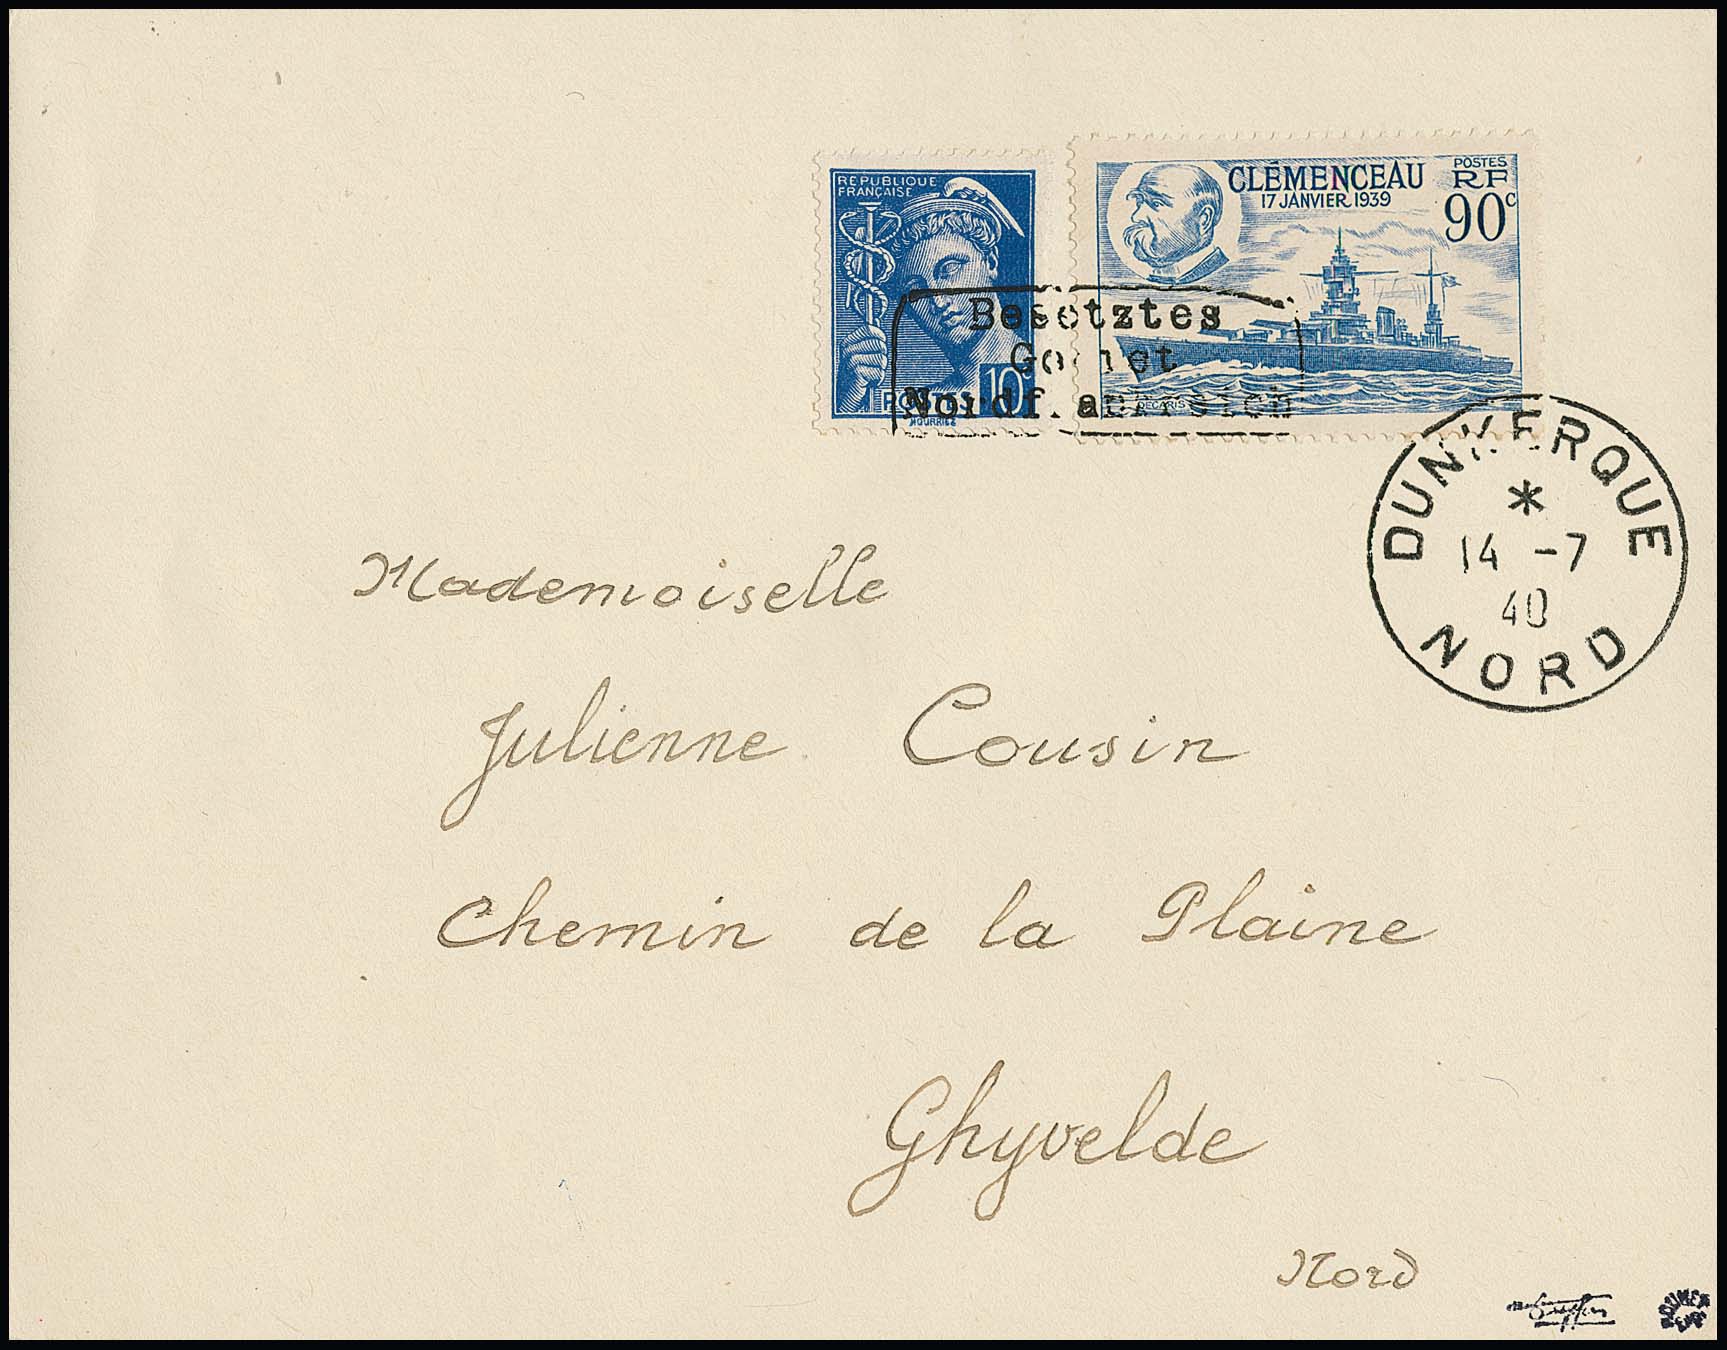 REPUBLIQUE
FRANÇAISE
10c
POSTES
CLÉMENCEAU
17 JANVIER 1939
POSTES
RF
90c
DECARIS
Besetztes
Nordf.ankreich
DUNKERQUE
*
14 -7
40
NORD
Mademoiselle
Julienne Cousin
Chemin de la Plaine
Ghyvelde
Nord